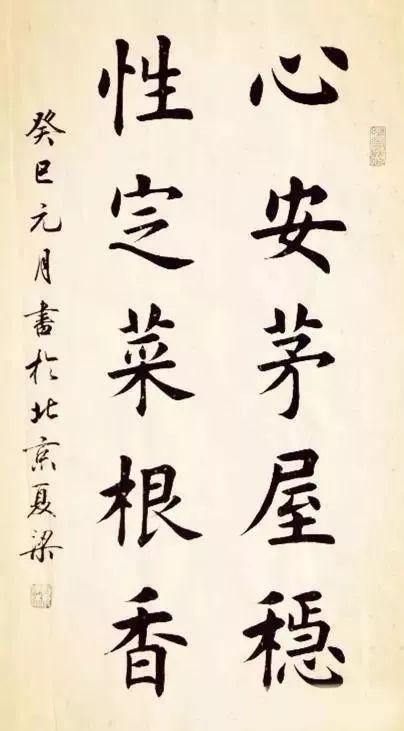 心安茅屋穏
性定菜根香
癸巳元月書於北京夏梁